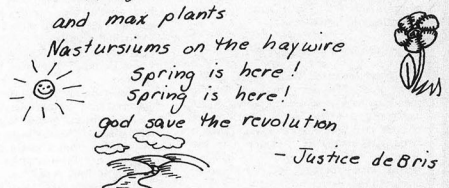 and max plants
Nastursiums on the haywire
Spring is here!
Spring is here!
god save the revolution
- Justice deBris